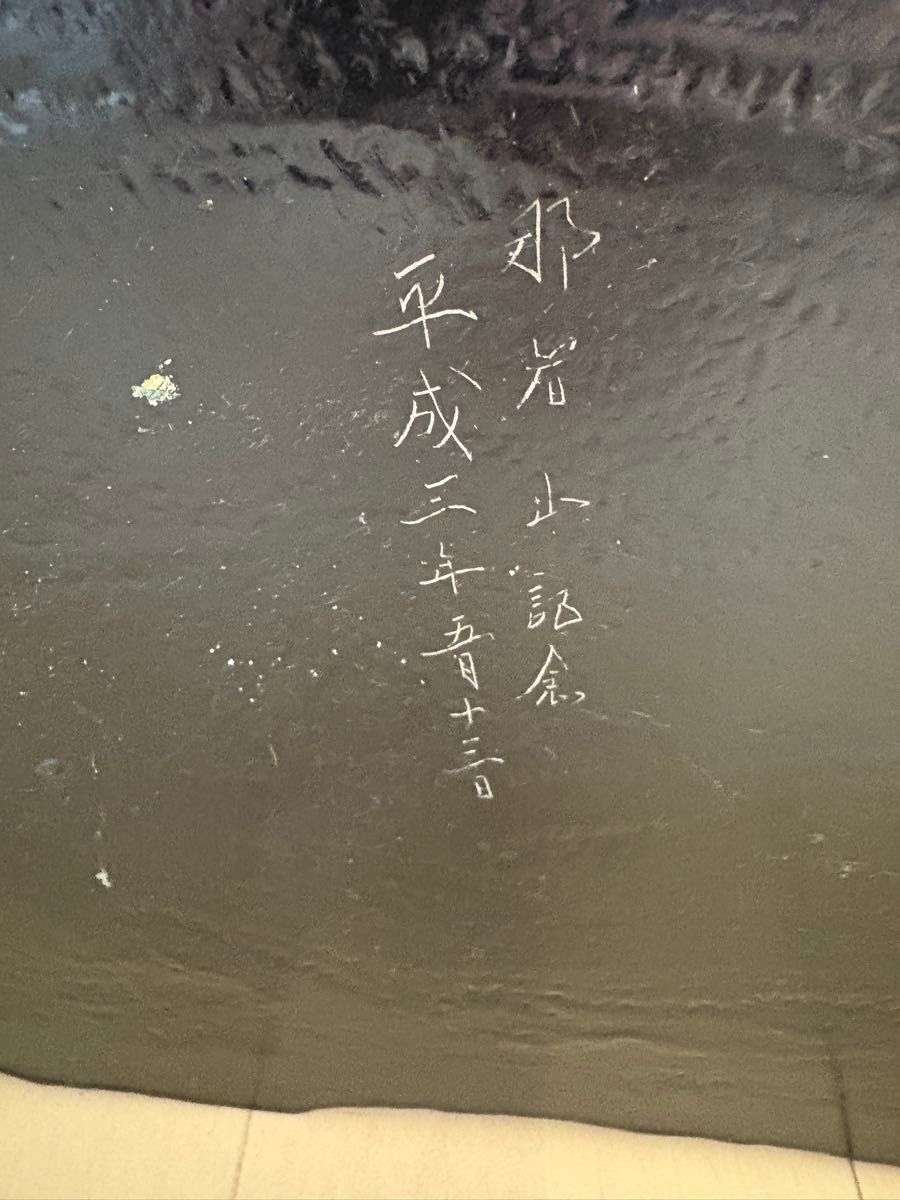 那智山記念
平成三年五月十三日